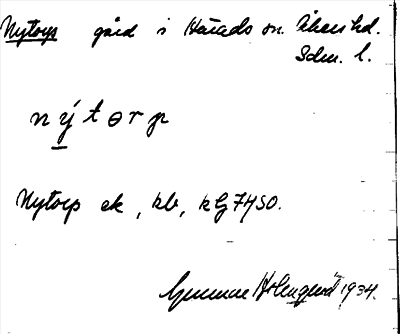 Nytorp gård i Härads sn. Åkers hd.
Sdm. l.
nýtɵrp
Nytorp ek, kb, kG 7450.
Gunnar Holmqvist 1934.